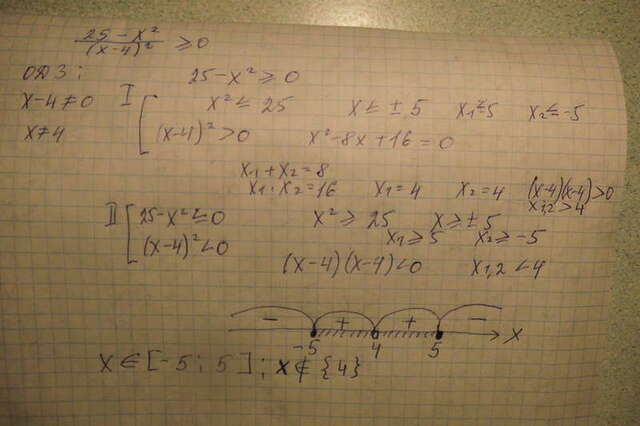 25 - x² / (x-4)² ≥ 0
ОДЗ: 25 - x² ≥ 0
x-4 ≠ 0 I [ x² ≤ 25 x ≤ ± 5 x₁ ≤ 5 x₂ ≤ -5
x ≠ 4 (x-4)² > 0 x² - 8x + 16 = 0
x₁ + x₂ = 8
x₁ · x₂ = 16 x₁ = 4 x₂ = 4 (x-4)(x-4) > 0
x₁,₂ > 4
II [ 25 - x² ≤ 0 x² ≥ 25 x ≥ ± 5
x₁ ≥ 5 x₂ ≥ -5
(x-4)² < 0 (x-4)(x-4) < 0 x₁,₂ < 4
- + + -
-5 4 5 x
x ∈ [-5; 5]; x ∉ {4}